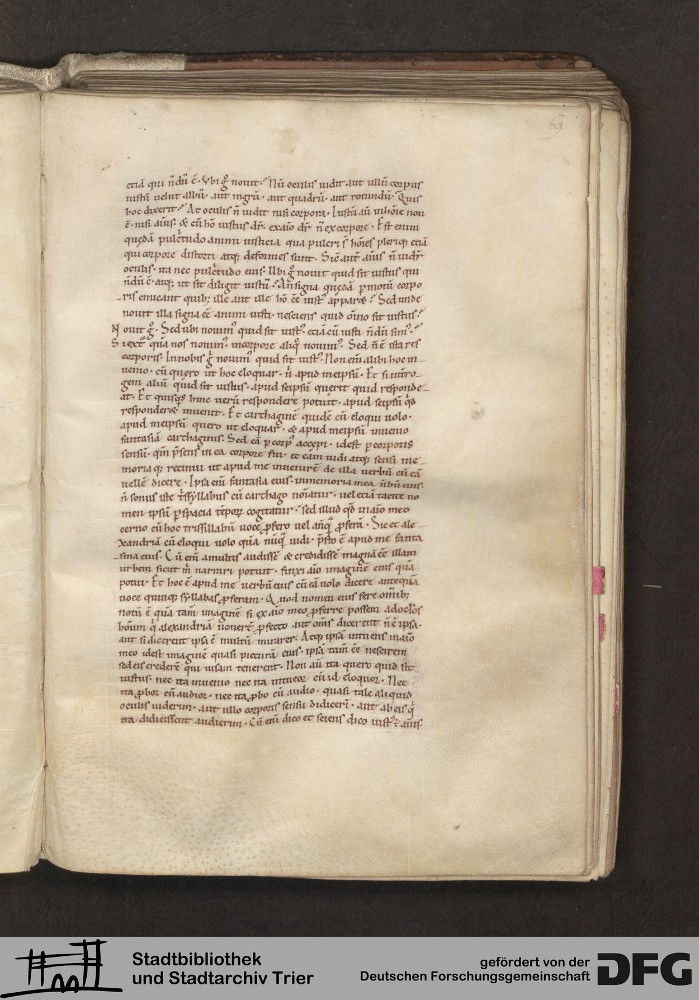 69
etiā qui n̄dū ē. Vbi gͦ nouit? Nū oculis uidit aut ullū corpus
iustū uelut albū. aut nigrū. aut quadrū. aut rotundū. Quis
hoc dixerit? At oculis n̄ uidit nisi corpora. Iustū aū in hoīe non
ē. nisi anīus. & cū hō iustus dr̄. ex aīo dr̄. n̄ ex corpore. Est enim
quędā pulc̄tudo animi iusticia qua pulcri s̄ hōies plerique etiā
qui corpore distorti atq; deformes sunt. Sic̄ aut̄ anīus n̄ uidet̄
oculis. ita nec pulc̄tudo eius. Ubi gͦ nouit quid sit iustus qui
n̄dū ē. atq; ut sit diligit iustū? An signa quędā ꝑ motū corpo
ris emicant quib; ille aut ille hō eē iustꝰ apparet? Sed unde
nouit illa signa eē animi iusti. nesciens quid oīno sit iustus?
Nouit gͦ. Sed ubi nouimꝰ quid sit iustꝰ. etiā cū iusti n̄dū simꝰ?
Si ext̄ qua nos nouimꝰ. in corpore aliq̊ nouimꝰ. Sed n̄ ē ista res
corporis. In nobis gͦ nouimꝰ quid sit iustꝰ. Non em̄ alibi hoc in
uenio. cū quęro ut hoc eloquar. n̄ apud meipsū. Et si int̄ro
gem aliū quid sit iustus. apud seipsū querit quid responde
at. Et quisq̄s hinc uerū respondere potuit. apud seipsū qd̄
responderet inuenit. Et carthaginē quidē cū eloqui uolo.
apud meipsū quero ut eloquar. & apud meipsū inuenio
fantasiā carthaginis. Sed eā ꝑ corpꝰ accepi. id est ꝑ corporis
sensū. qm̄ p̄sens in ea corpore fui. et eam uidi atq; sensi me
moriaq; retinui ut apud me inuenirē de illa uerbū cū eā
uellē dicere. Ipsa em̄ fantasia eius in memoria mea ūbū eius.
n̄ sonus iste t̄ssyllabus cū carthago nōiatur. uel etiā tacite no
men ipsū ꝑ spacia tēporꝝ cogitatur. sed illud qd̄ in aīo meo
cerno cū hoc trissillabū uoce ꝓfero uel antq̄ ꝓferā. Sic et ale
xandriā cū eloqui uolo quā nūq̄ uidi. p̄sto ē apud me fanta
sma eius. Cū em̄ a multis audissē & credidissē magnā eē illam
urbem sicut m̄ narrari potuit. finxi aīo imaginē eius quā
potui. Et hoc ē apud me uerbū eius cū eā uolo dicere antequā
uoce quinq; syllabas ꝓferam. Quod nomen eius fere omib;
notū ē quā tam̄ imaginē si ex aīo meo ꝓferre possem ad oclos
hōium q̄ alexandriā nouerē ꝓfecto aut om̄s dicerent n̄ ē ipsa.
aut si dicerent ipsa ē multū mirarer. Atq; ipsā intuens in aīo
meo id est imaginē quasi picturā eius. ipsā tam̄ eē nescirem
sed eis crederē qui uisam tenerent. Non aū ita quero quid sit
iustus. nec ita inuenio nec ita intueor cū id eloquor. Nec
ita ꝓbor cū audior. nec ita ꝓbo cū audio. quasi tale aliquid
oculis uiderim. aut ullo corporis sensu didicerī. aut ab eis q̄
ita didicissent audierim. Cū em̄ dico et sciens dico iustꝰ ē anīus
Stadtbibliothek
und Stadtarchiv Trier
gefördert von der
Deutschen Forschungsgemeinschaft
DFG